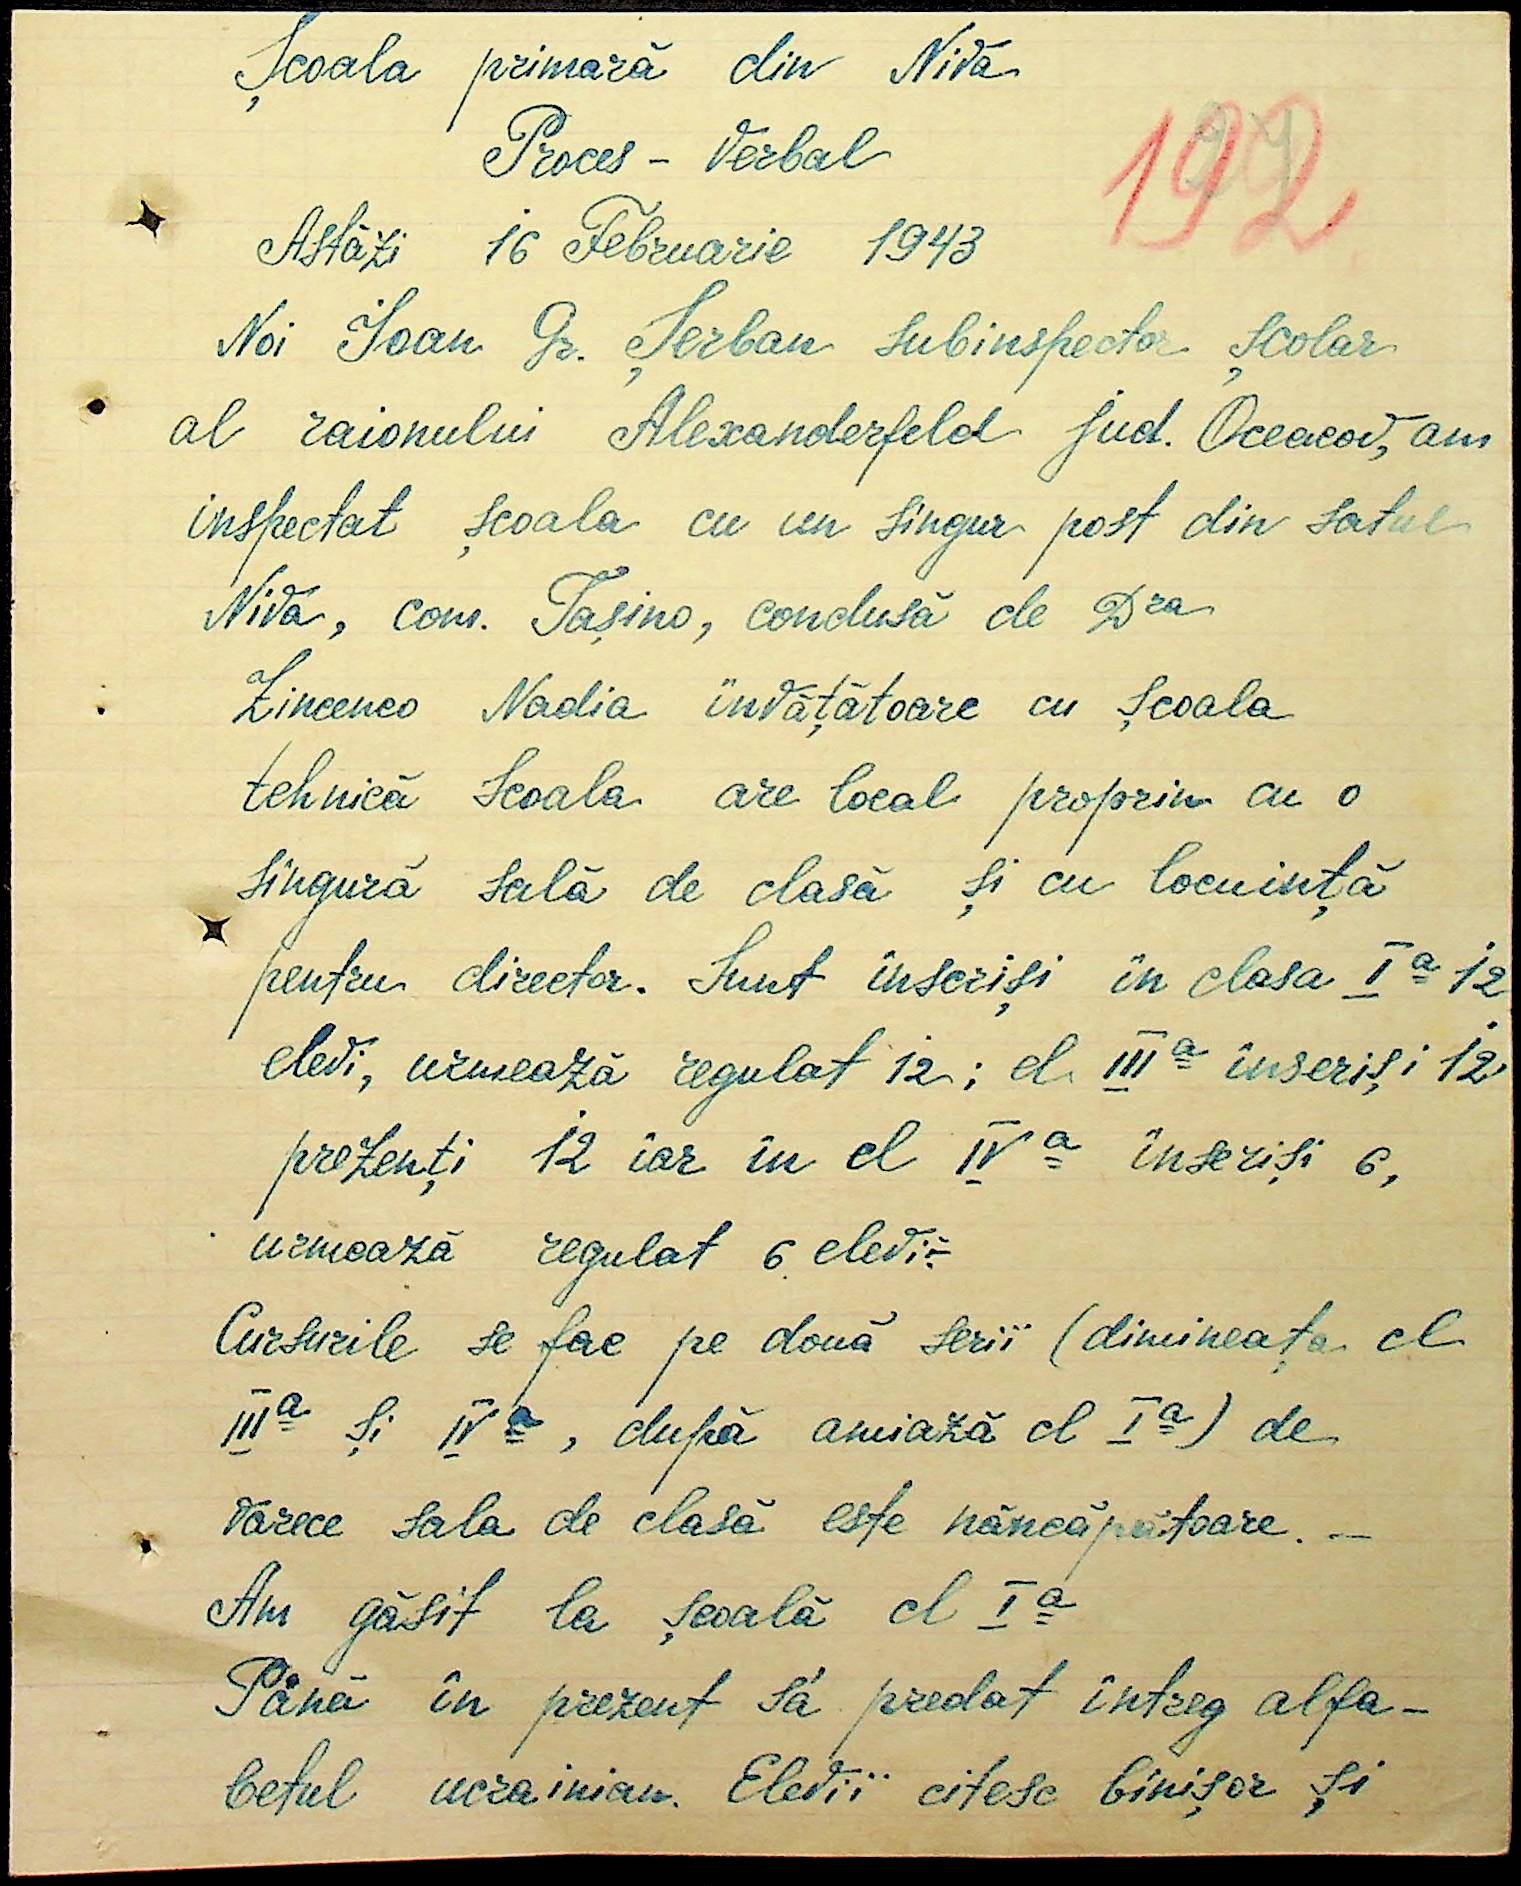 Școala primară din Niva
Proces - Verbal
192
Astăzi 16 Februarie 1943
Noi Ioan Gr. Șerban subinspector școlar
al raionului Alexanderfeld jud. Oceacov, am
inspectat școala cu un singur post din satul
Niva, com. Tașino, condusă de Dra
Zincenco Nadia învățătoare cu școala
tehnică Scoala are local propriu cu o
singură sală de clasă și cu locuință
pentru director. Sunt înscriși în clasa Iª 12
elevi, urmează regulat 12; cl IIIª înscriși 12
prezenți 12 iar în cl IVª înscriși 6,
urmează regulat 6 elevi
Cursurile se fac pe două serii (dimineața cl
IIIª și IVª, după amiază cl Iª) de
varece sala de clasă este năncăpătoare. —
Am găsit la școală cl Iª
Până în prezent s'a predat întreg alfa-
betul ucrainian. Elevii citesc binișor și